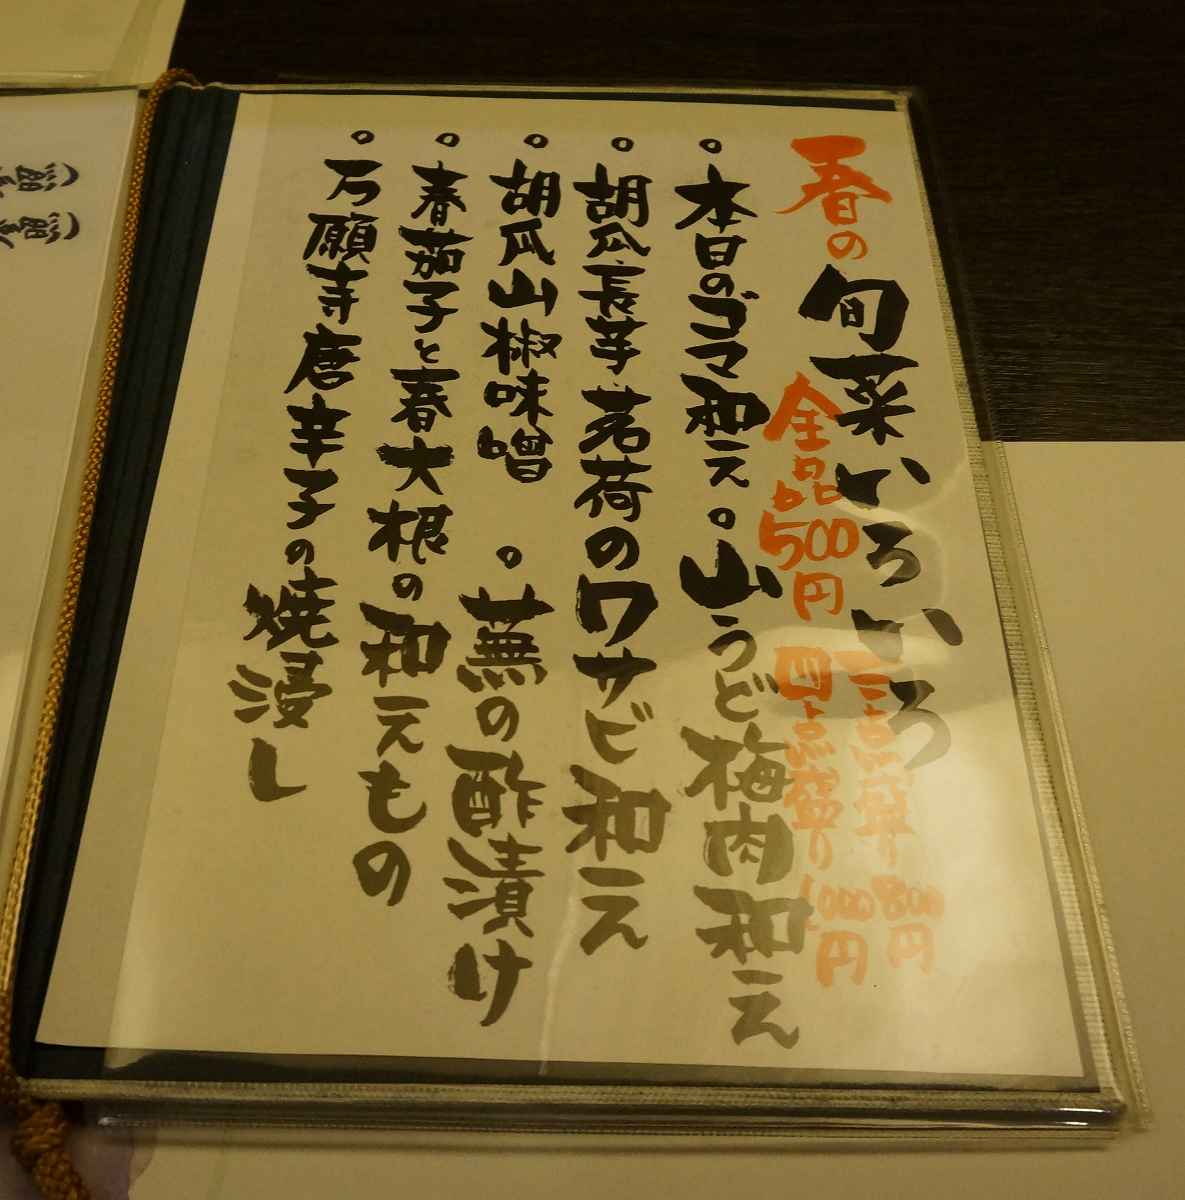 春の旬菜いろいろ
全品500円
三点盛り800円
四点盛り1000円
。本日のゴマ和え。山うど梅肉和え
。胡瓜、長芋、茗荷のワサビ和え
。胡瓜山椒味噌 。蕪の酢漬け
。春茄子と春大根の和えもの
。万願寺唐辛子の焼浸し